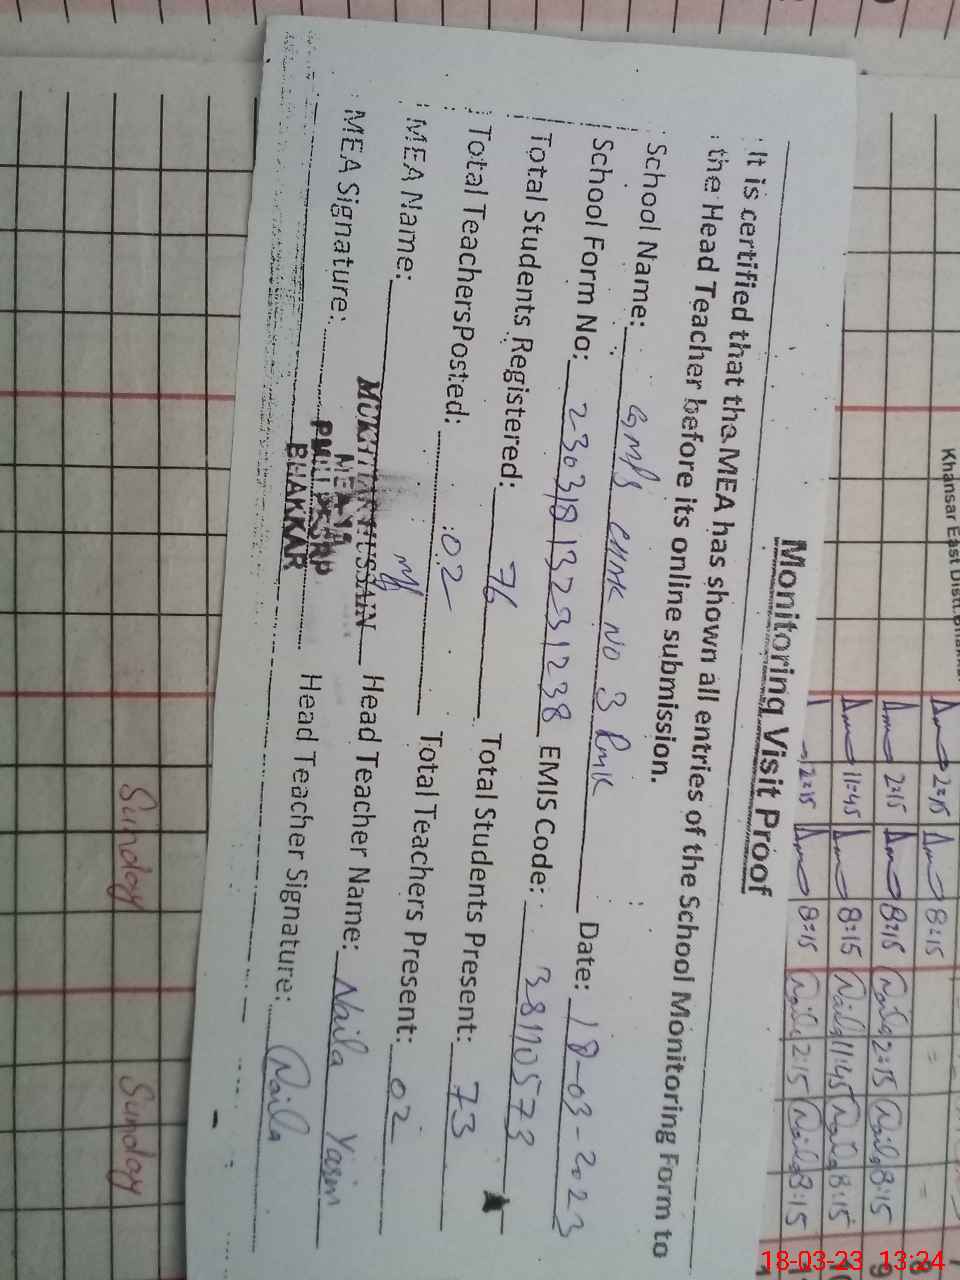 Monitoring Visit Proof
It is certified that the MEA has shown all entries of the School Monitoring Form to
the Head Teacher before its online submission.
School Name: GMPS CHAK NO 3 RMK Date: 18-03-2023
School Form No: 23031813231238 EMIS Code: 38110573
Total Students Registered: 76 Total Students Present: 73
Total TeachersPosted: 02 Total Teachers Present: 02
MEA Name: MUKHTIAR HUSSAIN Head Teacher Name: Naila Yasin
MEA Signature: Head Teacher Signature: Naila
MEA
BHAKKAR
Khansar East Distt.
2=15 8=15
2=15 8=15 Naila 2=15 Naila 8:15
11=45 8=15 Naila 11:45 Naila 8:15
2=15 8=15 Naila 2:15 Naila 8:15
Sunday Sunday
18-03-23 13:24